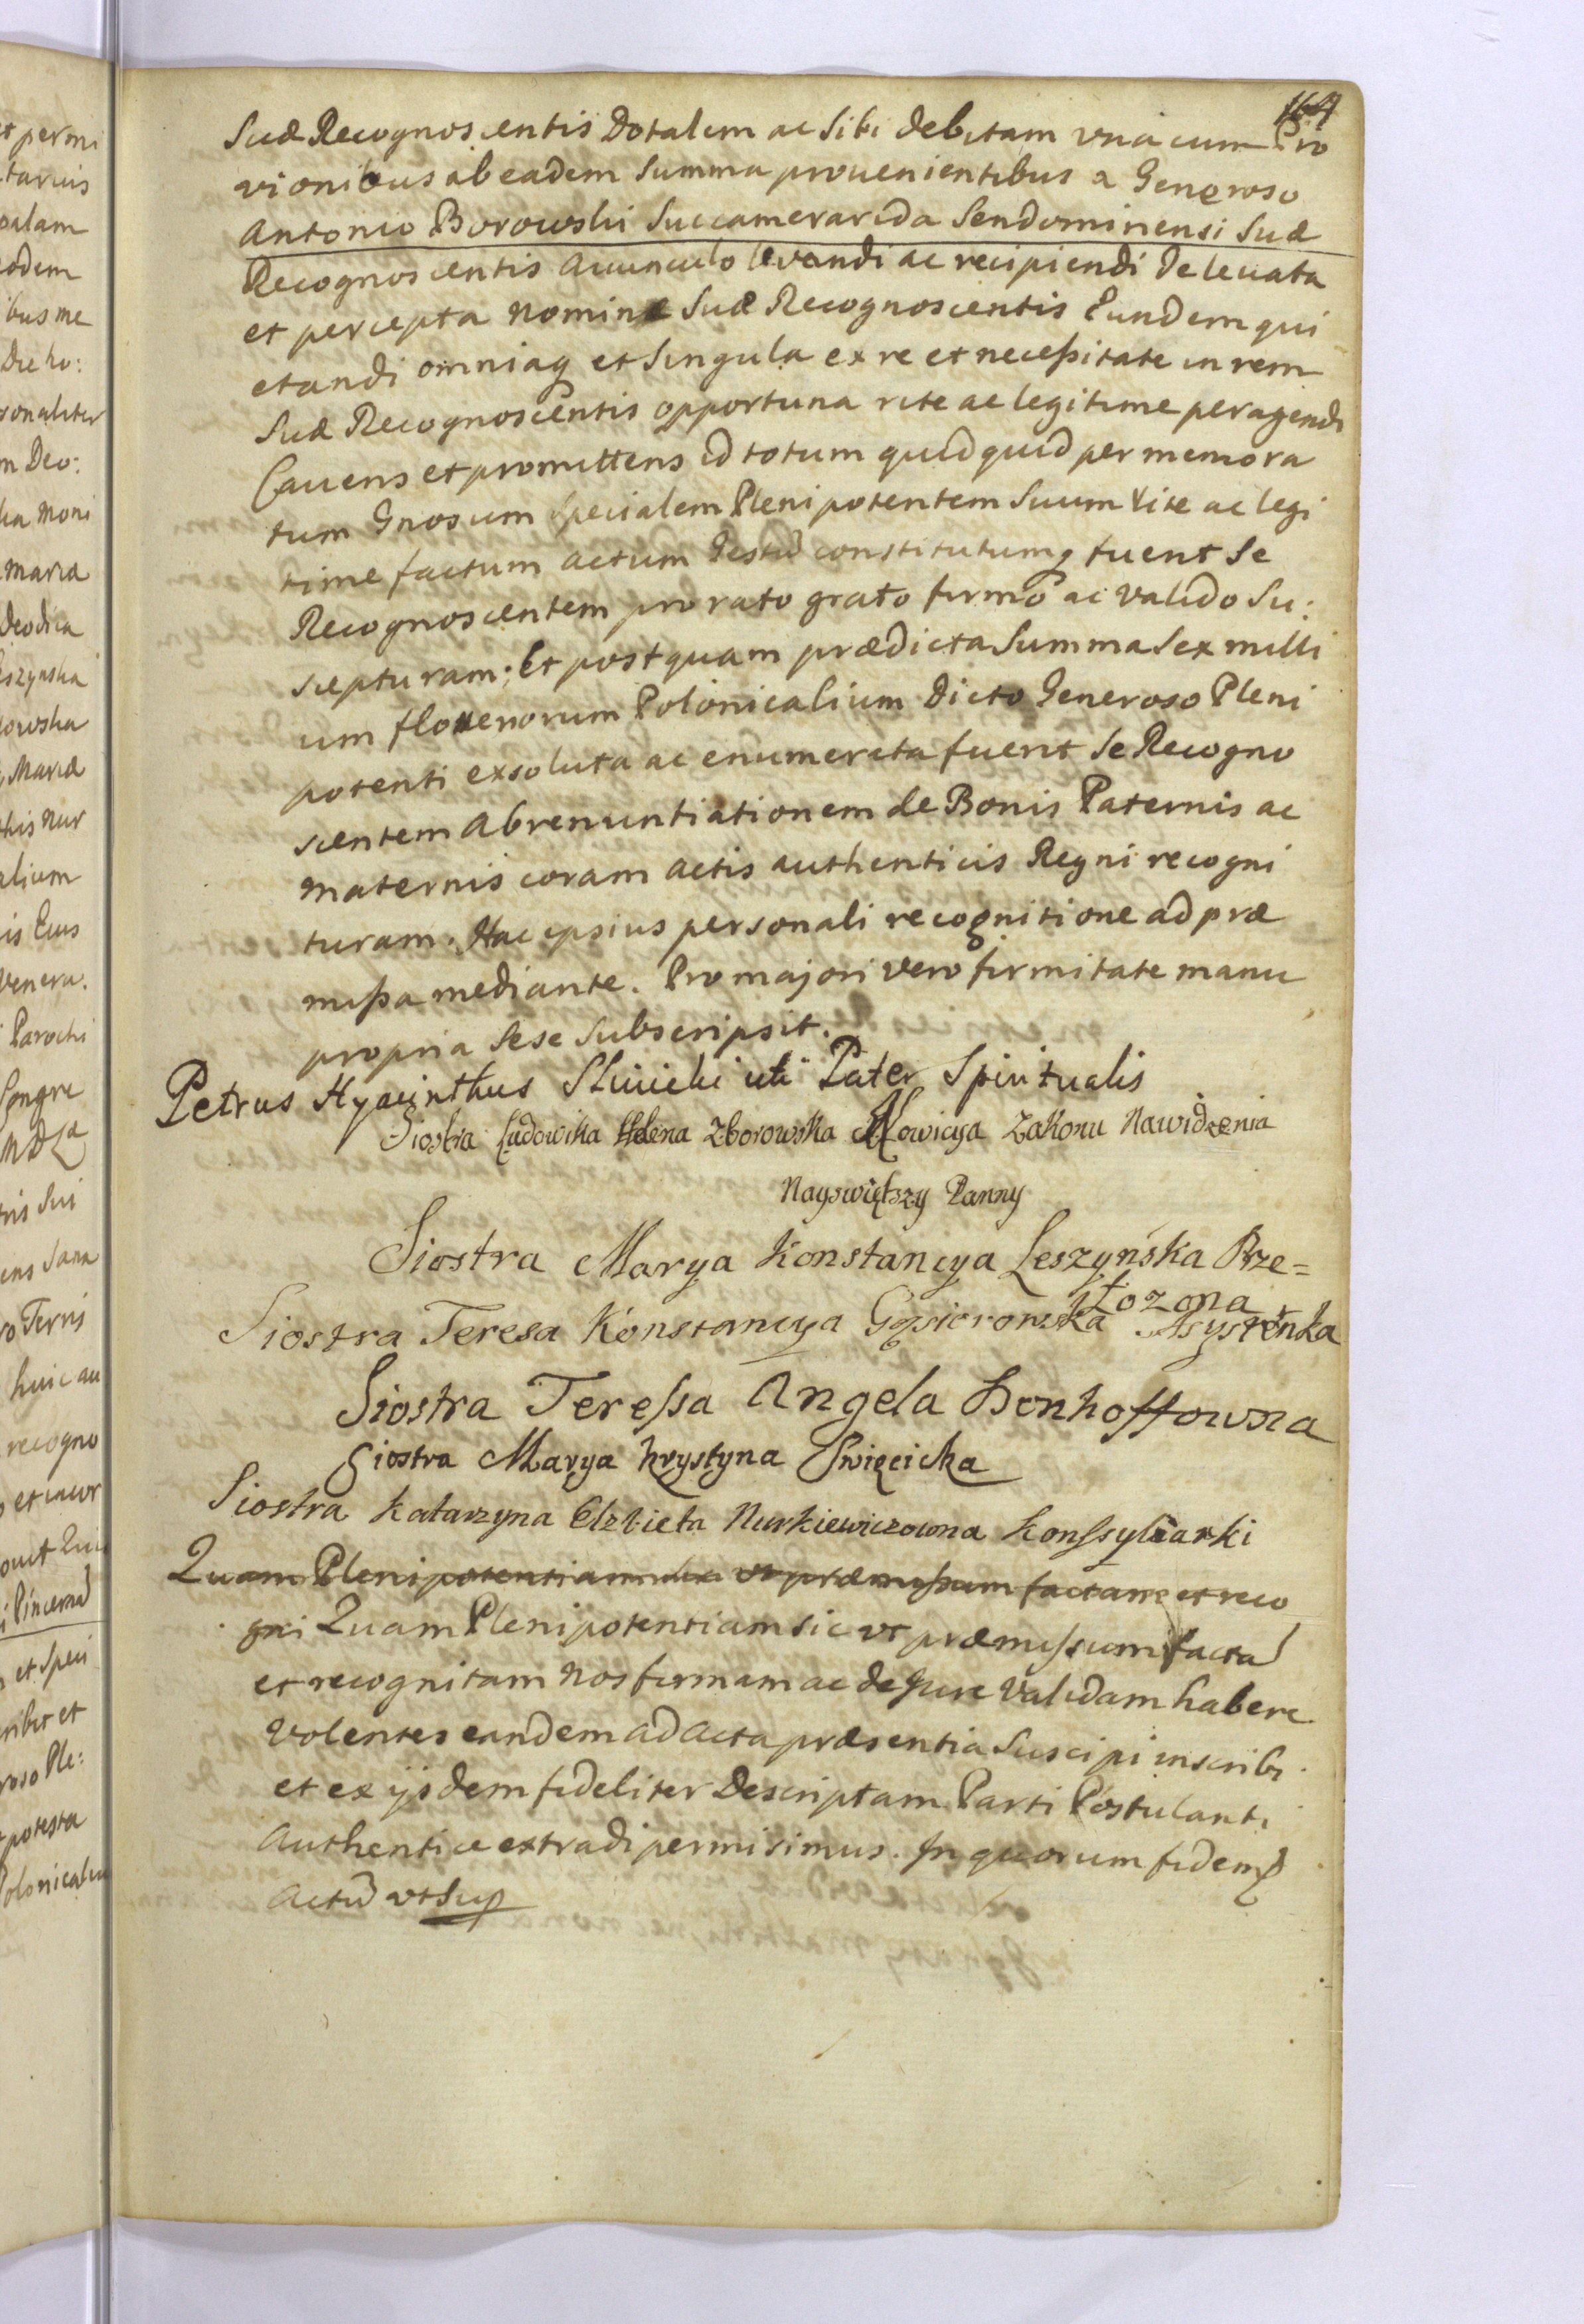 164
Suæ Recognoscentis Dotalem ac Sibi debitam vna cum Pro
visionibus ab eadem Summa prouenientibus a Generoso
Antonio Borowski Succamerarida Sendomiriensi Suæ
Recognoscentis Auunculo levandi ac recipiendi De leuata
et percepta nomine Suæ Recognoscentis Eundem qui
etandi omniaq et Singula ex re et necessitate in rem
Suæ Recognoscentis opportuna rite ac legitime peragendi
Cauens et promittens id totum quidquid per memora
tum Gnosum Specialem Plenipotentem Suum rite ac legi
time factum actum Gestũ constitutumq fuerit Se
Recognoscentem pro rato grato firmo ac valido Su:
scepturam; Et postquam prædicta Summa Sex milli
um florenorum Polonicalium Dicto Generoso Pleni
potenti exsoluta ac enumerata fuerit Se Recogno
scentem Abrenuntiationem de Bonis Paternis ac
Maternis coram actis authenticis Regni recogni
turam. Hac ipsius personali recognitione ad præ
missa mediante. Pro majori vero firmitate manu
propria Sese Subscripsit.
Petrus Hyacinthus Sliwicki uti Pater Spiritualis
Siostra Ludowika Helena Zborowska Nowicya Zakonu Nawidzenia
Nayswiętszy Panny
Siostra Marya Konstancya Leszyńska Prze=
łozona
Siostra Teresa Konstancya Gąsiorowska Asystenka
Siostra Teressa Angela Denhoffowna
Siostra Marya Krystyna Swięcicka
Siostra Katarzyna Elzbieta Nurkiewiczowna Konssyliarki
Quam Plenipotentiam ut præmissum factam et reco
gni Quam Plenipotentiam sic vt præmissum facta
et recognitam Nos firmam ac de Jure Validam habere
Volentes eandem ad Acta præsentia Suscipi inscribi
et ex ijsdem fideliter Descriptam Parti Postulanti
Authentice extradi permisimus. In quorum fidem
Actũ vt Sup